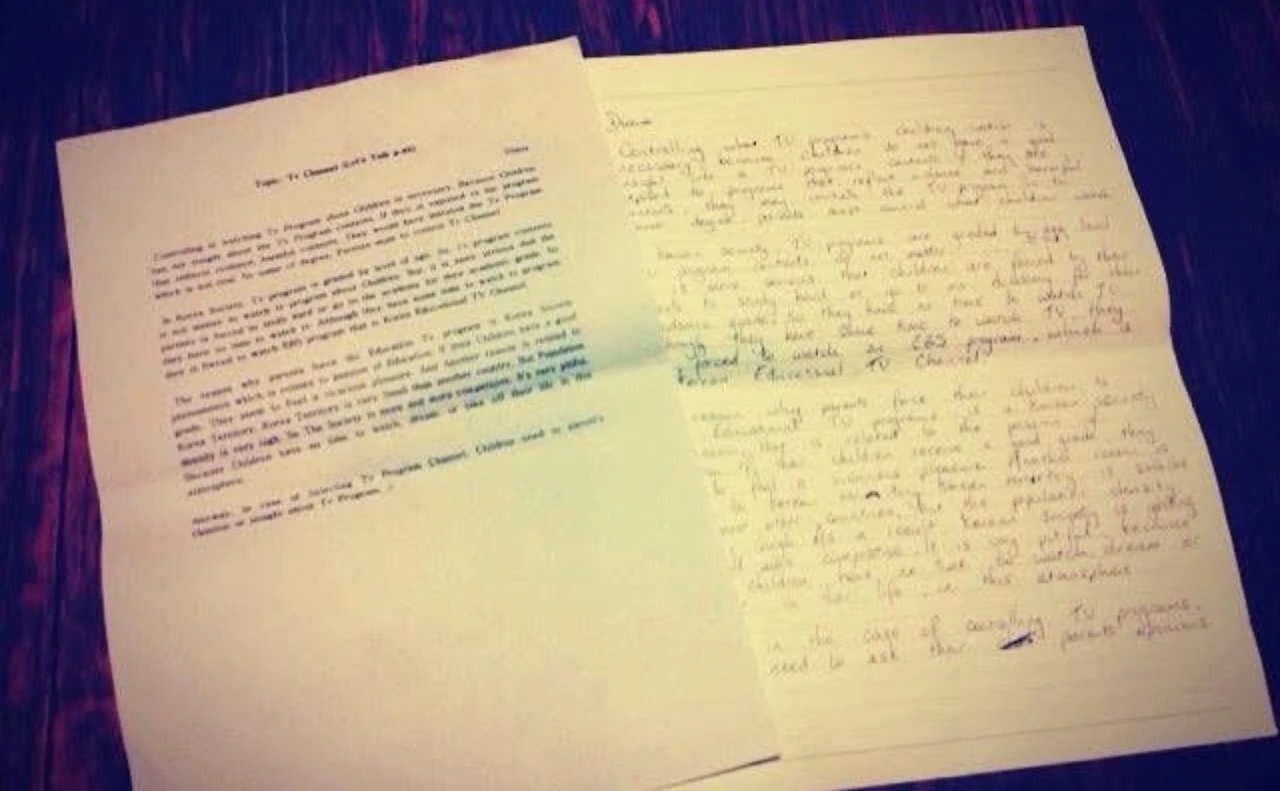 Topic: Tv Channel (Let's Talk p.
Controlling is watching Tv Program about Children is necessary. Because Children
has not insight about the Tv Program contents. If they is exposed to the program
that reflects violence, harmful contents. They would have imitated the Tv Program
which is not real. So some of degree, Parents need to control Tv Channel.
In Korea Society, Tv program is graded by level of age. So Tv program contents
is not matter to watch tv program about Children. But it is more serious that the
parents is forced to study hard or go to the academy for their academic grade. So
they have no time to watch tv. Although they have some time to watch tv program
they is forced to watch EBS program that is Korea Educational TV Channel.
The reason why parents force the Education Tv program is Korea Society
phenomenon which is related to passion of Education. If their Children have a good
grade. They seem to feel a vicarious pleasure. And Another reason is related to
Korea Territory. Korea Territory is very small than another country. But Population
density is very high. So The Society is more and more competitive. It's very pitiful.
Because Children have no time to watch, dream, or take off their life in this
atmosphere.
Anyway, in case of Selecting Tv Program Channel, Children need to parent's
opinion or insight about Tv Program.
Controlling what TV programs children watch is
necessary because children do not have a good
insight into a TV programs contents. If they are
exposed to programs that reflect violence and harmful
contents, they may imitate the TV program. So to
some degree, parents must control what children watch
Korean society, TV programs are graded by age level
program contents do not matter
is more serious that children are forced by their
to study hard or go to an academy for their
academic grades so they have no time to watch TV.
they have some time to watch TV, they
forced to watch an EBS program, which is
Korean Educational TV Channel
reason why parents force their children to
Educational TV programs is a Korean society
is related to the passion of
If their children receive a good grade they
to feel a vicarious pleasure. Another reason is
Korean territory. Korean territory is smaller
most other countries, but the population density
high. As a result Korean society is getting
more competitive. It is very pitiful because
children have no time to watch, dream or
their life in this atmosphere.
in the case of controlling TV programs,
need to ask their parents' opinions